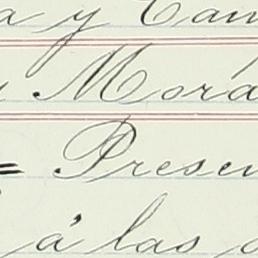 a y Cam
Mora
= Presen
á las